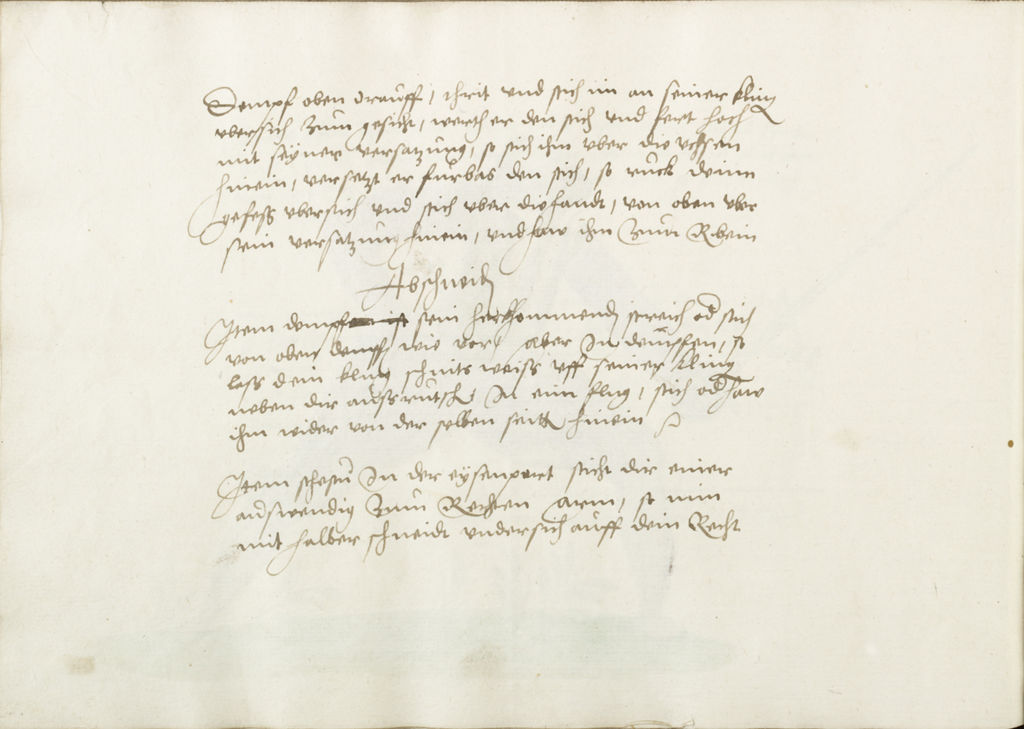 Dempf oben drauff, schrit und stich im an seiner kling
ubersich zum gesicht, werth er den stich und fert hoch
mit seyner versatzung, so stich ihm uber die uchsen
hinein, versetzt er furbas den stich, so ruck dein
gefess ubersich und stich uber die handt, von oben uber
sein versatzung hinein, und haw ihm zum Rbein
Abschneiden
Item dempf sein herkommend streich od stich
von oben dempff wie vor, aber In dempfen, so
lass dein kling schnits weiss uff seiner kling
neben dir aussrutschen In eim flug, stich od haw
ihm wider von der selben seitten hinein
Item stestu In der eysenport sticht dir einer
auswendig zum Rechten arm, so nim
mit halber schneidt undersich auff dein Recht